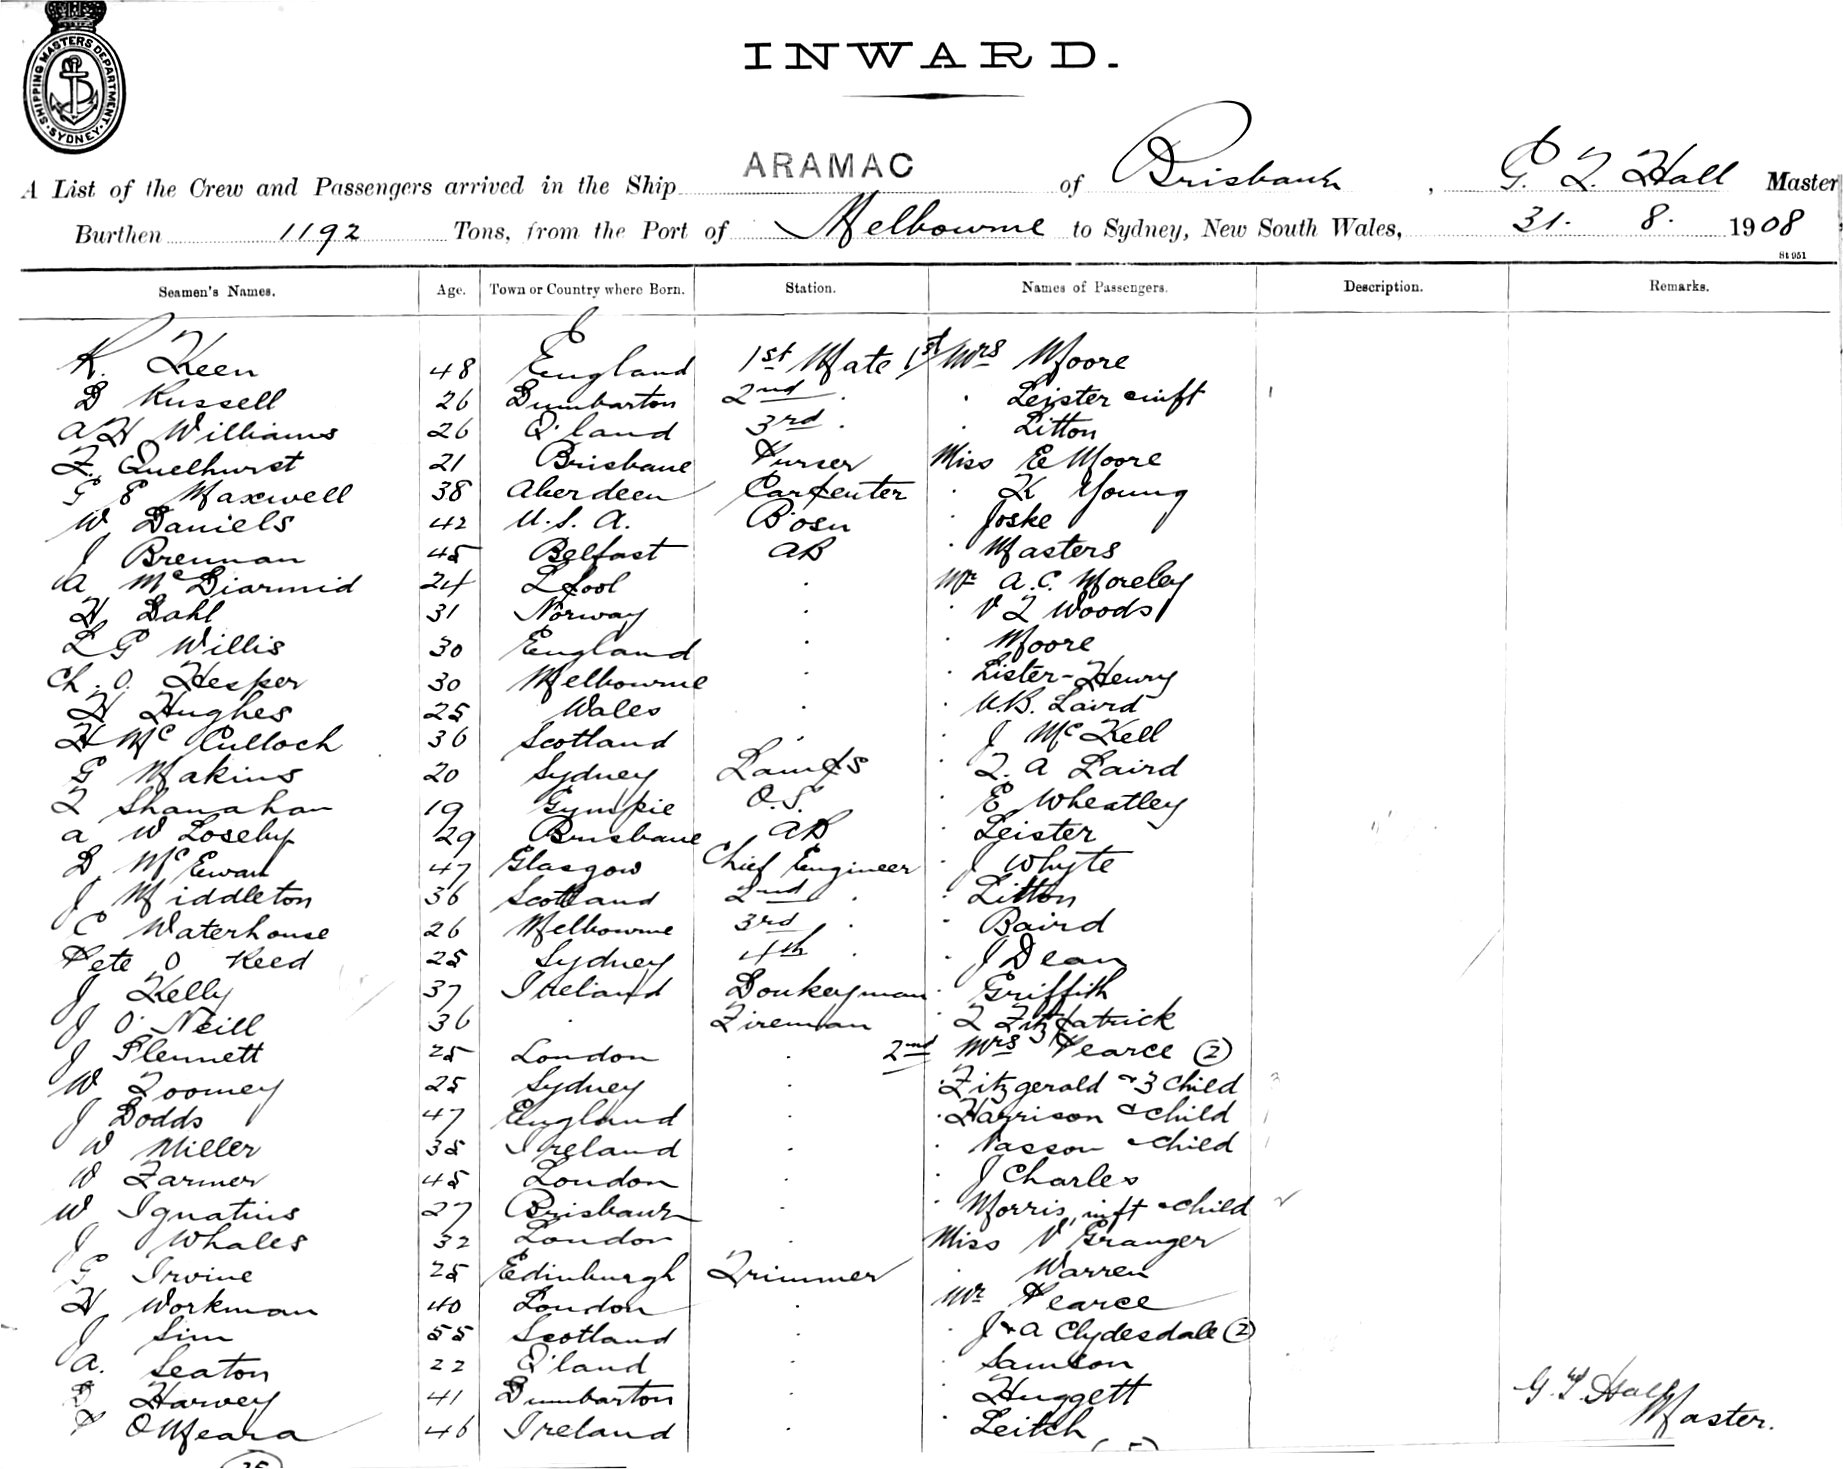 SHIPPING MASTERS DEPARTMENT. SYDNEY.
INWARD.
A List of the Crew and Passengers arrived in the Ship ARAMAC of Brisbane, G. T. Hall Master
Burthen 1192 Tons, from the Port of Melbourne to Sydney, New South Wales, 31. 8. 1908
St 951
Seamen's Names. Age. Town or Country where Born. Station. Names of Passengers. Description. Remarks.
R. Keen 48 England 1st Mate 1st Mrs Moore
D Russell 26 Dumbarton 2nd . . Leister & inft 1
A H Williams 26 Q'land 3rd . Litton
F. Quelhurst 21 Brisbane Purser Miss E Moore
G E Maxwell 38 Aberdeen Carpenter . K Young
W Daniels 42 U.S.A. B'osn . Joske
J Brennan 45 Belfast AB . Masters
A McDiarmid 24 L'pool . Mr A.C. Moreley
H Dahl 31 Norway . . V T Woods
L G Willis 30 England . . Moore
Ch. O. Hesper 30 Melbourne . . Lister-Henry
H Hughes 25 Wales . . U.B. Laird
H McCulloch 36 Scotland . . J McKell
G Makins 20 Sydney Lamps . T. A Laird
T Shanahan 19 Gympie O.S. . E Wheatley
A W Loseby 29 Brisbane AB . Leister
D McEwan 47 Glasgow Chief Engineer . J Whyte
J Middleton 36 Scotland 2nd . . Litton
C Waterhouse 26 Melbourne 3rd . . Baird
Pete O Reed 25 Sydney 4th . . J Dean
J Kelly 37 Ireland Donkeyman . Griffith
J O'Neill 36 . Fireman . T Fitzpatrick
J Plennett 25 London . 2nd Mrs Pearce (2)
W Toomey 25 Sydney . . Fitzgerald & 3 child 3
J Dodds 47 England . . Harrison & child 1
W Miller 35 Ireland . . Vasson & child 1
W Farmer 45 London . . J Charles
W Ignatius 27 Brisbane . . Morris, inft & child 2
J Whales 32 London . Miss V Granger
G Irvine 25 Edinburgh Trimmer . Warren
H Workman 40 London . Mr Pearce
J Sim 55 Scotland . . J & A Clydesdale (2)
A. Seaton 22 Q'land . . Samson
D Harvey 41 Dumbarton . . Huggett
P O'Meara 46 Ireland . . Leitch
G. T. Hall
Master.